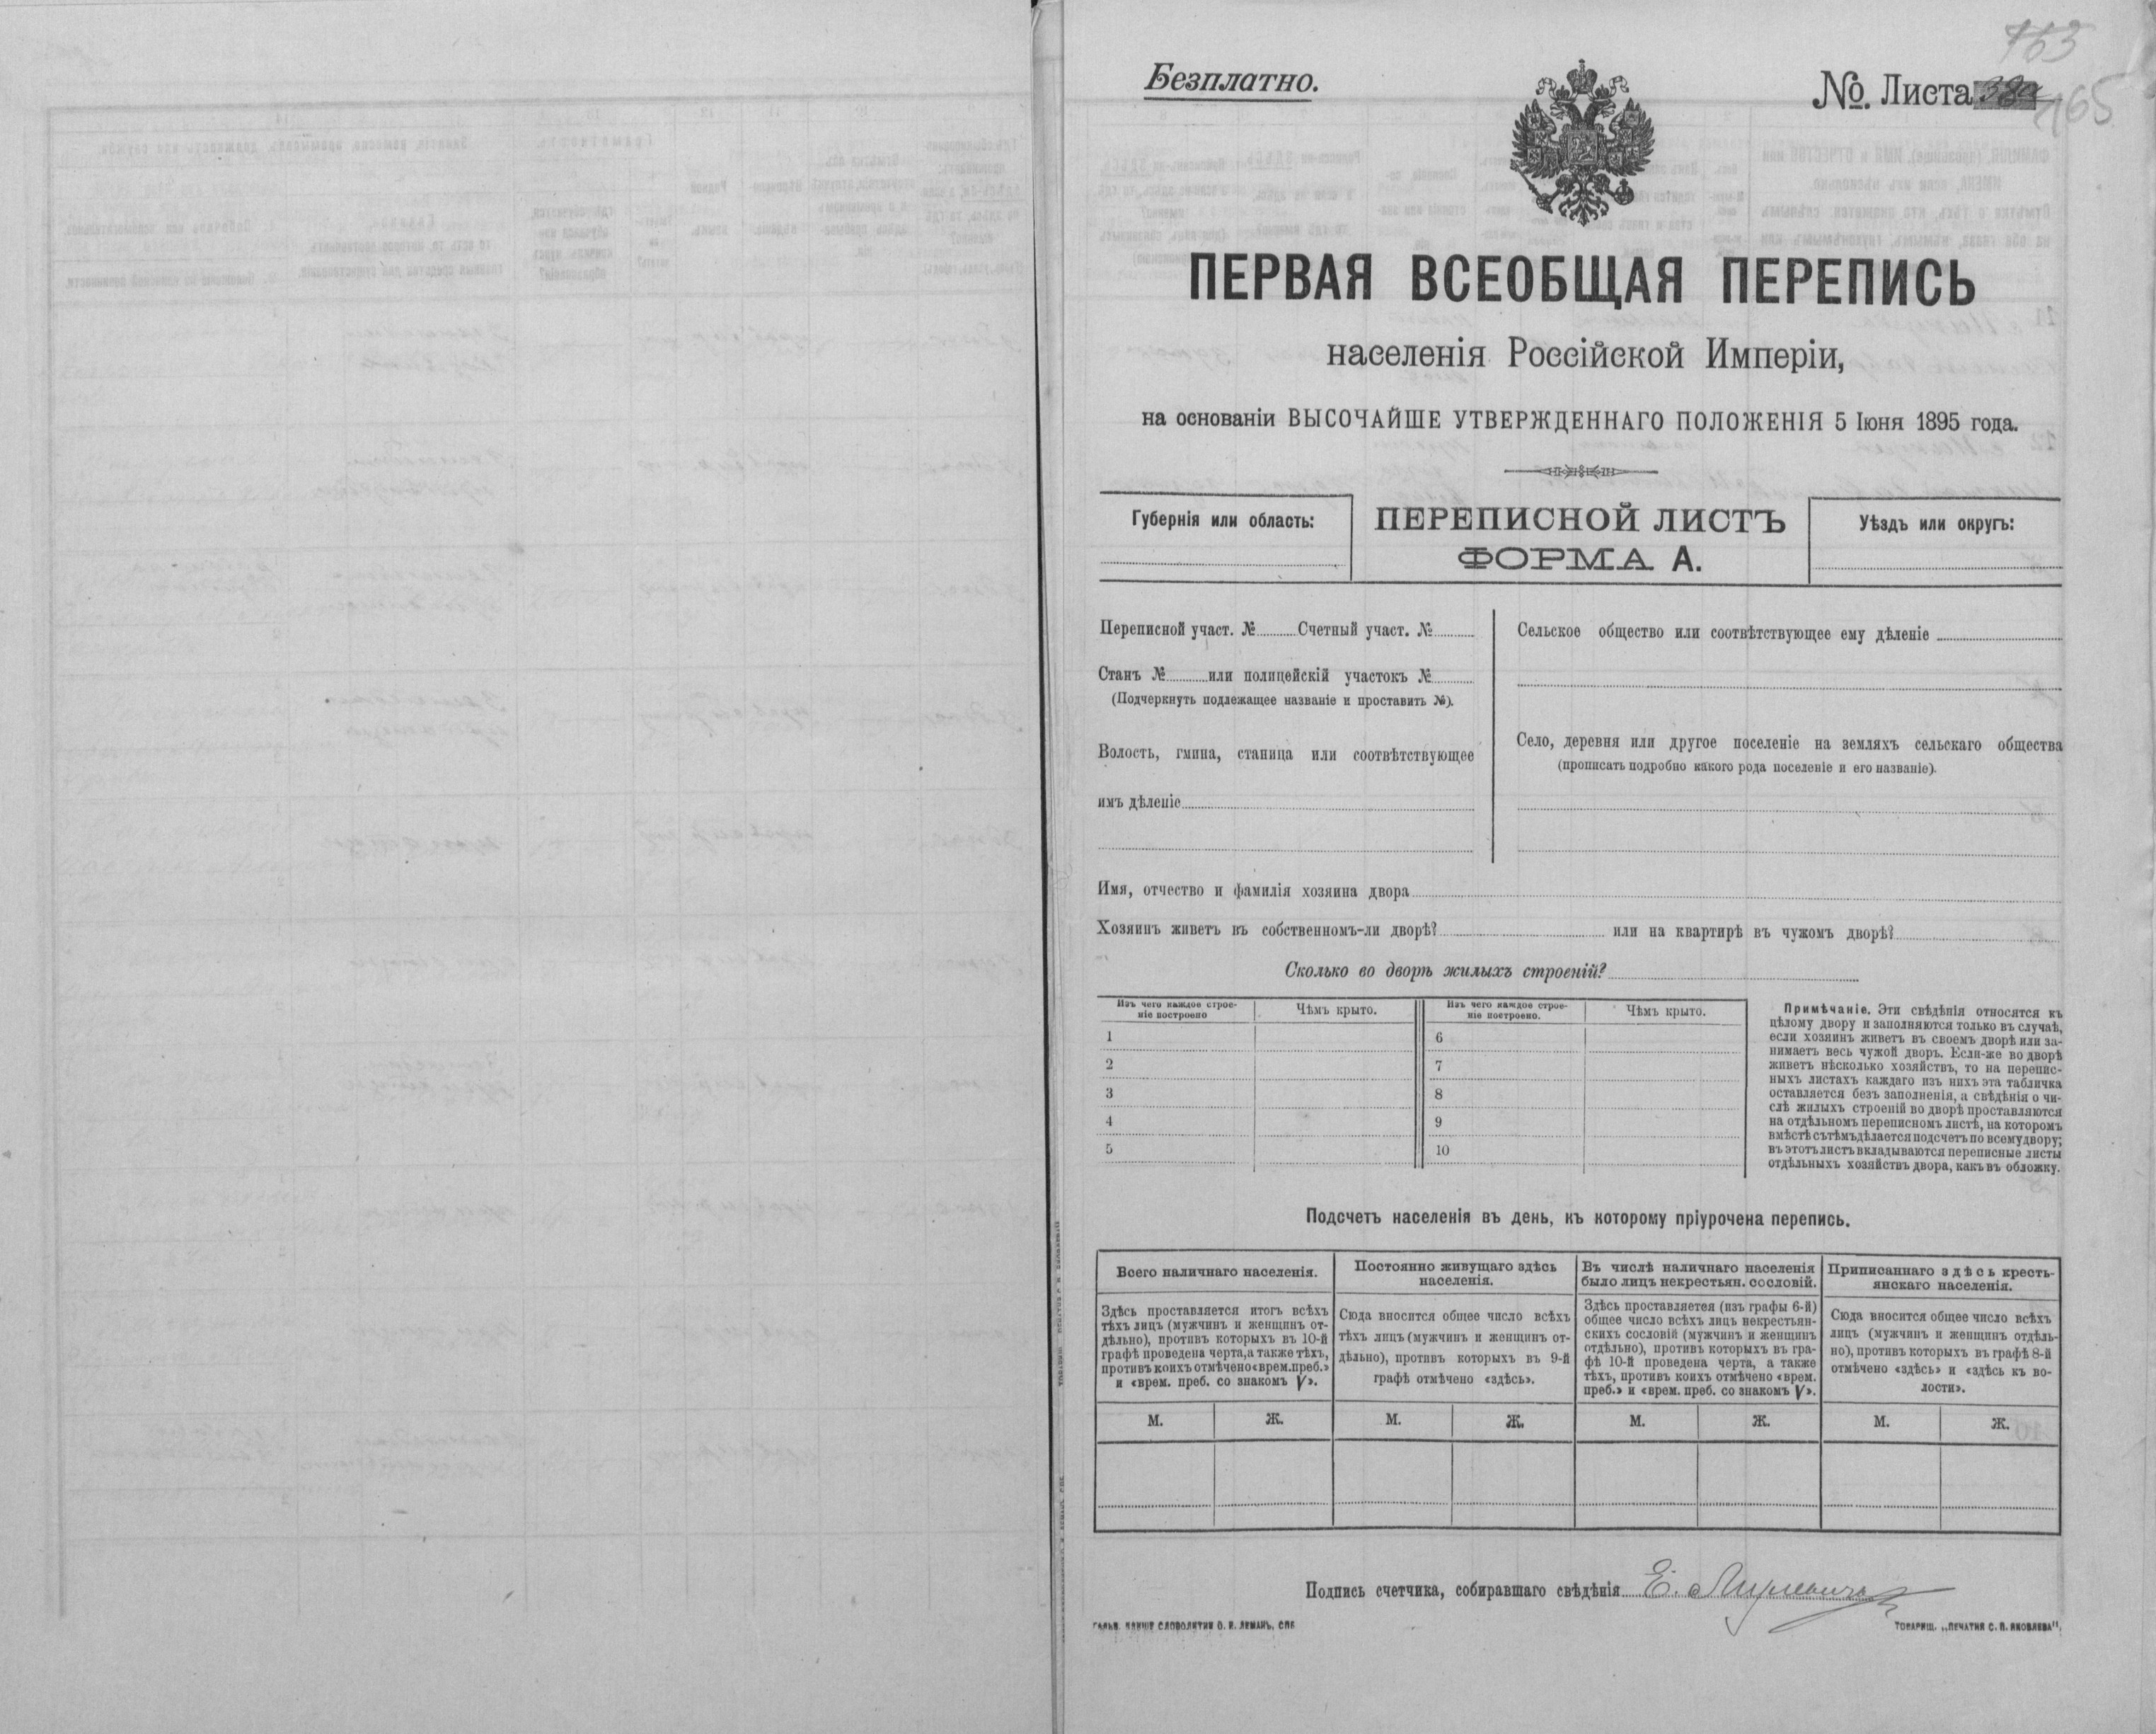 163
Безплатно.
№ Листа 38а
165
ПЕРВАЯ ВСЕОБЩАЯ ПЕРЕПИСЬ
населенія Россійской Имперіи,
на основаніи ВЫСОЧАЙШЕ УТВЕРЖДЕННАГО ПОЛОЖЕНІЯ 5 Іюня 1895 года.
Губернія или область:
ПЕРЕПИСНОЙ ЛИСТЪ
ФОРМА А.
Уѣздъ или округъ:
Переписной участ. № Счетный участ. №
Станъ № или полицейскій участокъ №
(Подчеркнуть подлежащее названіе и проставить №).
Волость, гмина, станица или соотвѣтствующее
имъ дѣленіе
Сельское общество или соотвѣтствующее ему дѣленіе
Село, деревня или другое поселеніе на земляхъ сельскаго общества
(прописать подробно какого рода поселеніе и его названіе).
Имя, отчество и фамилія хозяина двора
Хозяинъ живетъ въ собственномъ-ли дворѣ? или на квартирѣ въ чужомъ дворѣ?
Сколько во дворѣ жилыхъ строеній?
Изъ чего каждое строе-
ніе построено
Чѣмъ крыто.
Изъ чего каждое строе-
ніе построено.
Чѣмъ крыто.
1
6
2
7
3
8
4
9
5
10
Примѣчаніе. Эти свѣдѣнія относятся къ
цѣлому двору и заполняются только въ случаѣ,
если хозяинъ живетъ въ своемъ дворѣ или за-
нимаетъ весь чужой дворъ. Если-же во дворѣ
живетъ нѣсколько хозяйствъ, то на перепис-
ныхъ листахъ каждаго изъ нихъ эта табличка
оставляется безъ заполненія, а свѣдѣнія о чи-
слѣ жилыхъ строеній во дворѣ проставляются
на отдѣльномъ переписномъ листѣ, на которомъ
вмѣстѣ съ тѣмъ дѣлается подсчетъ по всему двору;
въ этотъ листъ вкладываются переписные листы
отдѣльныхъ хозяйствъ двора, какъ въ обложку.
Подсчетъ населенія въ день, къ которому пріурочена перепись.
Всего наличнаго населенія.
Здѣсь проставляется итогъ всѣхъ
тѣхъ лицъ (мужчинъ и женщинъ от-
дѣльно), противъ которыхъ въ 10-й
графѣ проведена черта, а также тѣхъ,
противъ коихъ отмѣчено «врем. преб.»
и «врем. преб. со знакомъ V».
Постоянно живущаго здѣсь
населенія.
Сюда вносится общее число всѣхъ
тѣхъ лицъ (мужчинъ и женщинъ от-
дѣльно), противъ которыхъ въ 9-й
графѣ отмѣчено «здѣсь».
Въ числѣ наличнаго населенія
было лицъ некрестьян. сословій.
Здѣсь проставляется (изъ графы 6-й)
общее число всѣхъ лицъ некрестьян-
скихъ сословій (мужчинъ и женщинъ
отдѣльно), противъ которыхъ въ гра-
фѣ 10-й проведена черта, а также
тѣхъ, противъ коихъ отмѣчено «врем.
преб.» и «врем. преб. со знакомъ V».
Приписаннаго здѣсь кресть-
янскаго населенія.
Сюда вносится общее число всѣхъ
лицъ (мужчинъ и женщинъ отдѣль-
но), противъ которыхъ въ графѣ 8-й
отмѣчено «здѣсь» и «здѣсь къ во-
лости».
М. Ж. М. Ж. М. Ж. М. Ж.
Подпись счетчика, собиравшаго свѣдѣнія Е.
СЛОВОЛИТНИ О. И. ЛЕМАНЪ, СПБ
ТОВАРИЩ. „ПЕЧАТНЯ С. П. ЯКОВЛЕВА“.